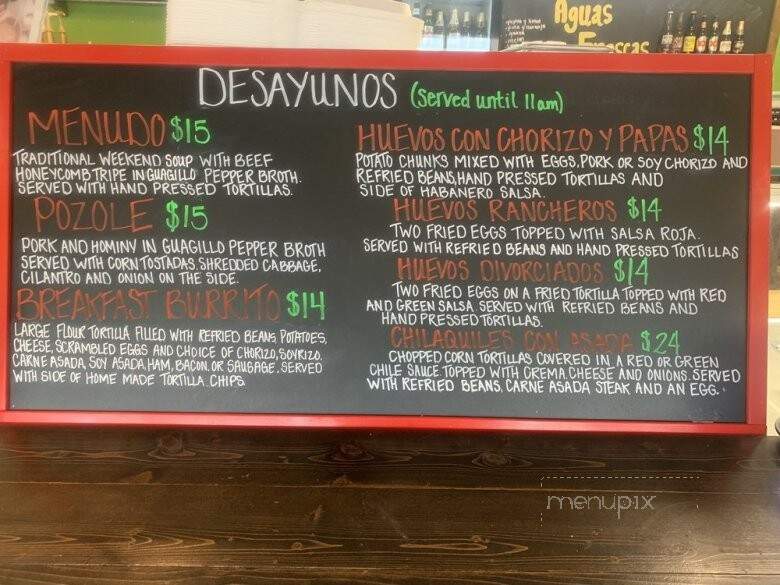 Aguas
Frescas
DESAYUNOS (Served until 11am)
MENUDO $15
TRADITIONAL WEEKEND SOUP WITH BEEF
HONEYCOMB TRIPE IN GUAGILLO PEPPER BROTH.
SERVED WITH HAND PRESSED TORTILLAS.
POZOLE $15
PORK AND HOMINY IN GUAGILLO PEPPER BROTH
SERVED WITH CORN TOSTADAS, SHREDDED CABBAGE,
CILANTRO AND ONION ON THE SIDE.
BREAKFAST BURRITO $14
LARGE FLOUR TORTILLA FILLED WITH REFRIED BEANS, POTATOES,
CHEESE, SCRAMBLED EGGS AND CHOICE OF CHORIZO, SOYRIZO.
CARNE ASADA, SOY ASADA, HAM, BACON. OR SAUSAGE. SERVED
WITH SIDE OF HOME MADE TORTILLA CHIPS
HUEVOS CON CHORIZO Y PAPAS $14
POTATO CHUNKS MIXED WITH EGGS, PORK OR SOY CHORIZO AND
REFRIED BEANS, HAND PRESSED TORTILLAS AND
SIDE OF HABANERO SALSA.
HUEVOS RANCHEROS $14
TWO FRIED EGGS TOPPED WITH SALSA ROJA.
SERVED WITH REFRIED BEANS AND HAND PRESSED TORTILLAS
HUEVOS DIVORCIADOS $14
TWO FRIED EGGS ON A FRIED TORTILLA TOPPED WITH RED
AND GREEN SALSA SERVED WITH REFRIED BEANS AND
HAND PRESSED TORTILLAS.
CHILAQUILES CON ASADA $24
CHOPPED CORN TORTILLAS COVERED IN A RED OR GREEN
CHILE SAUCE TOPPED WITH CREMA, CHEESE AND ONIONS. SERVED
WITH REFRIED BEANS, CARNE ASADA STEAK AND AN EGG.
menupix